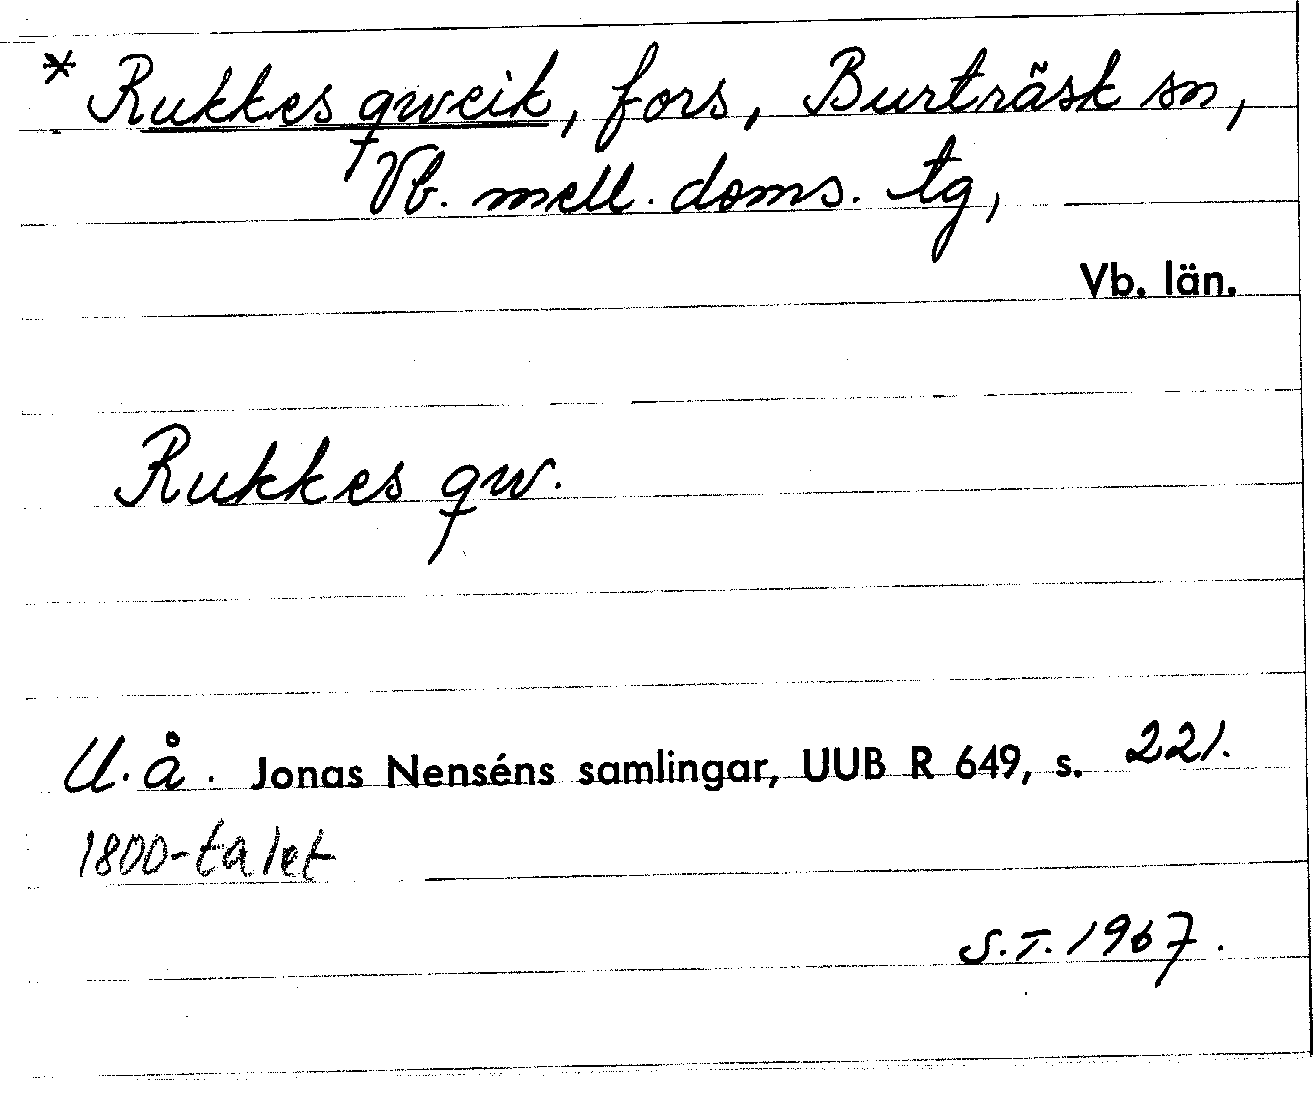 * Rukkes qweik, fors, Burträsk sn,
Vb. mell. doms. tg,
Vb. län.
Rukkes qw.
U. å. Jonas Nenséns samlingar, UUB R 649, s. 221.
1800-talet
S.T. 1967.